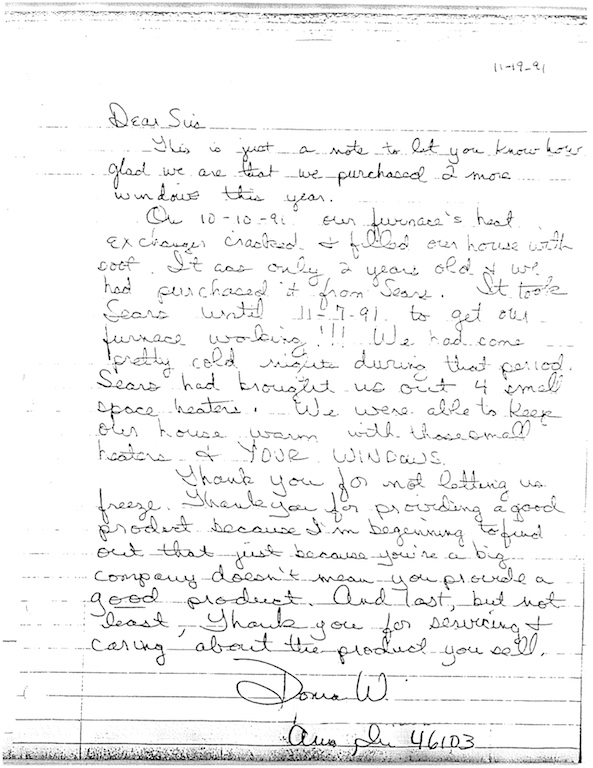 11-19-91
Dear Sirs
This is just a note to let you know how
glad we are that we purchased 2 more
windows this year.
On 10-10-91 our furnace's heat
exchanger cracked & filled our house with
soot. It was only 2 years old & we
had purchased it from Sears. It took
Sears until 11-7-91 to get our
furnace working!!! We had some
pretty cold nights during that period.
Sears had brought us out 4 small
space heaters. We were able to keep
our house warm with those small
heaters & YOUR WINDOWS.
Thank you for not letting us
freeze. Thank you for providing a good
product because I'm beginning to find
out that just because you're a big
company doesn't mean you provide a
good product. And last, but not
least, Thank you for servicing &
caring about the product you sell.
Donna W.
In 46103